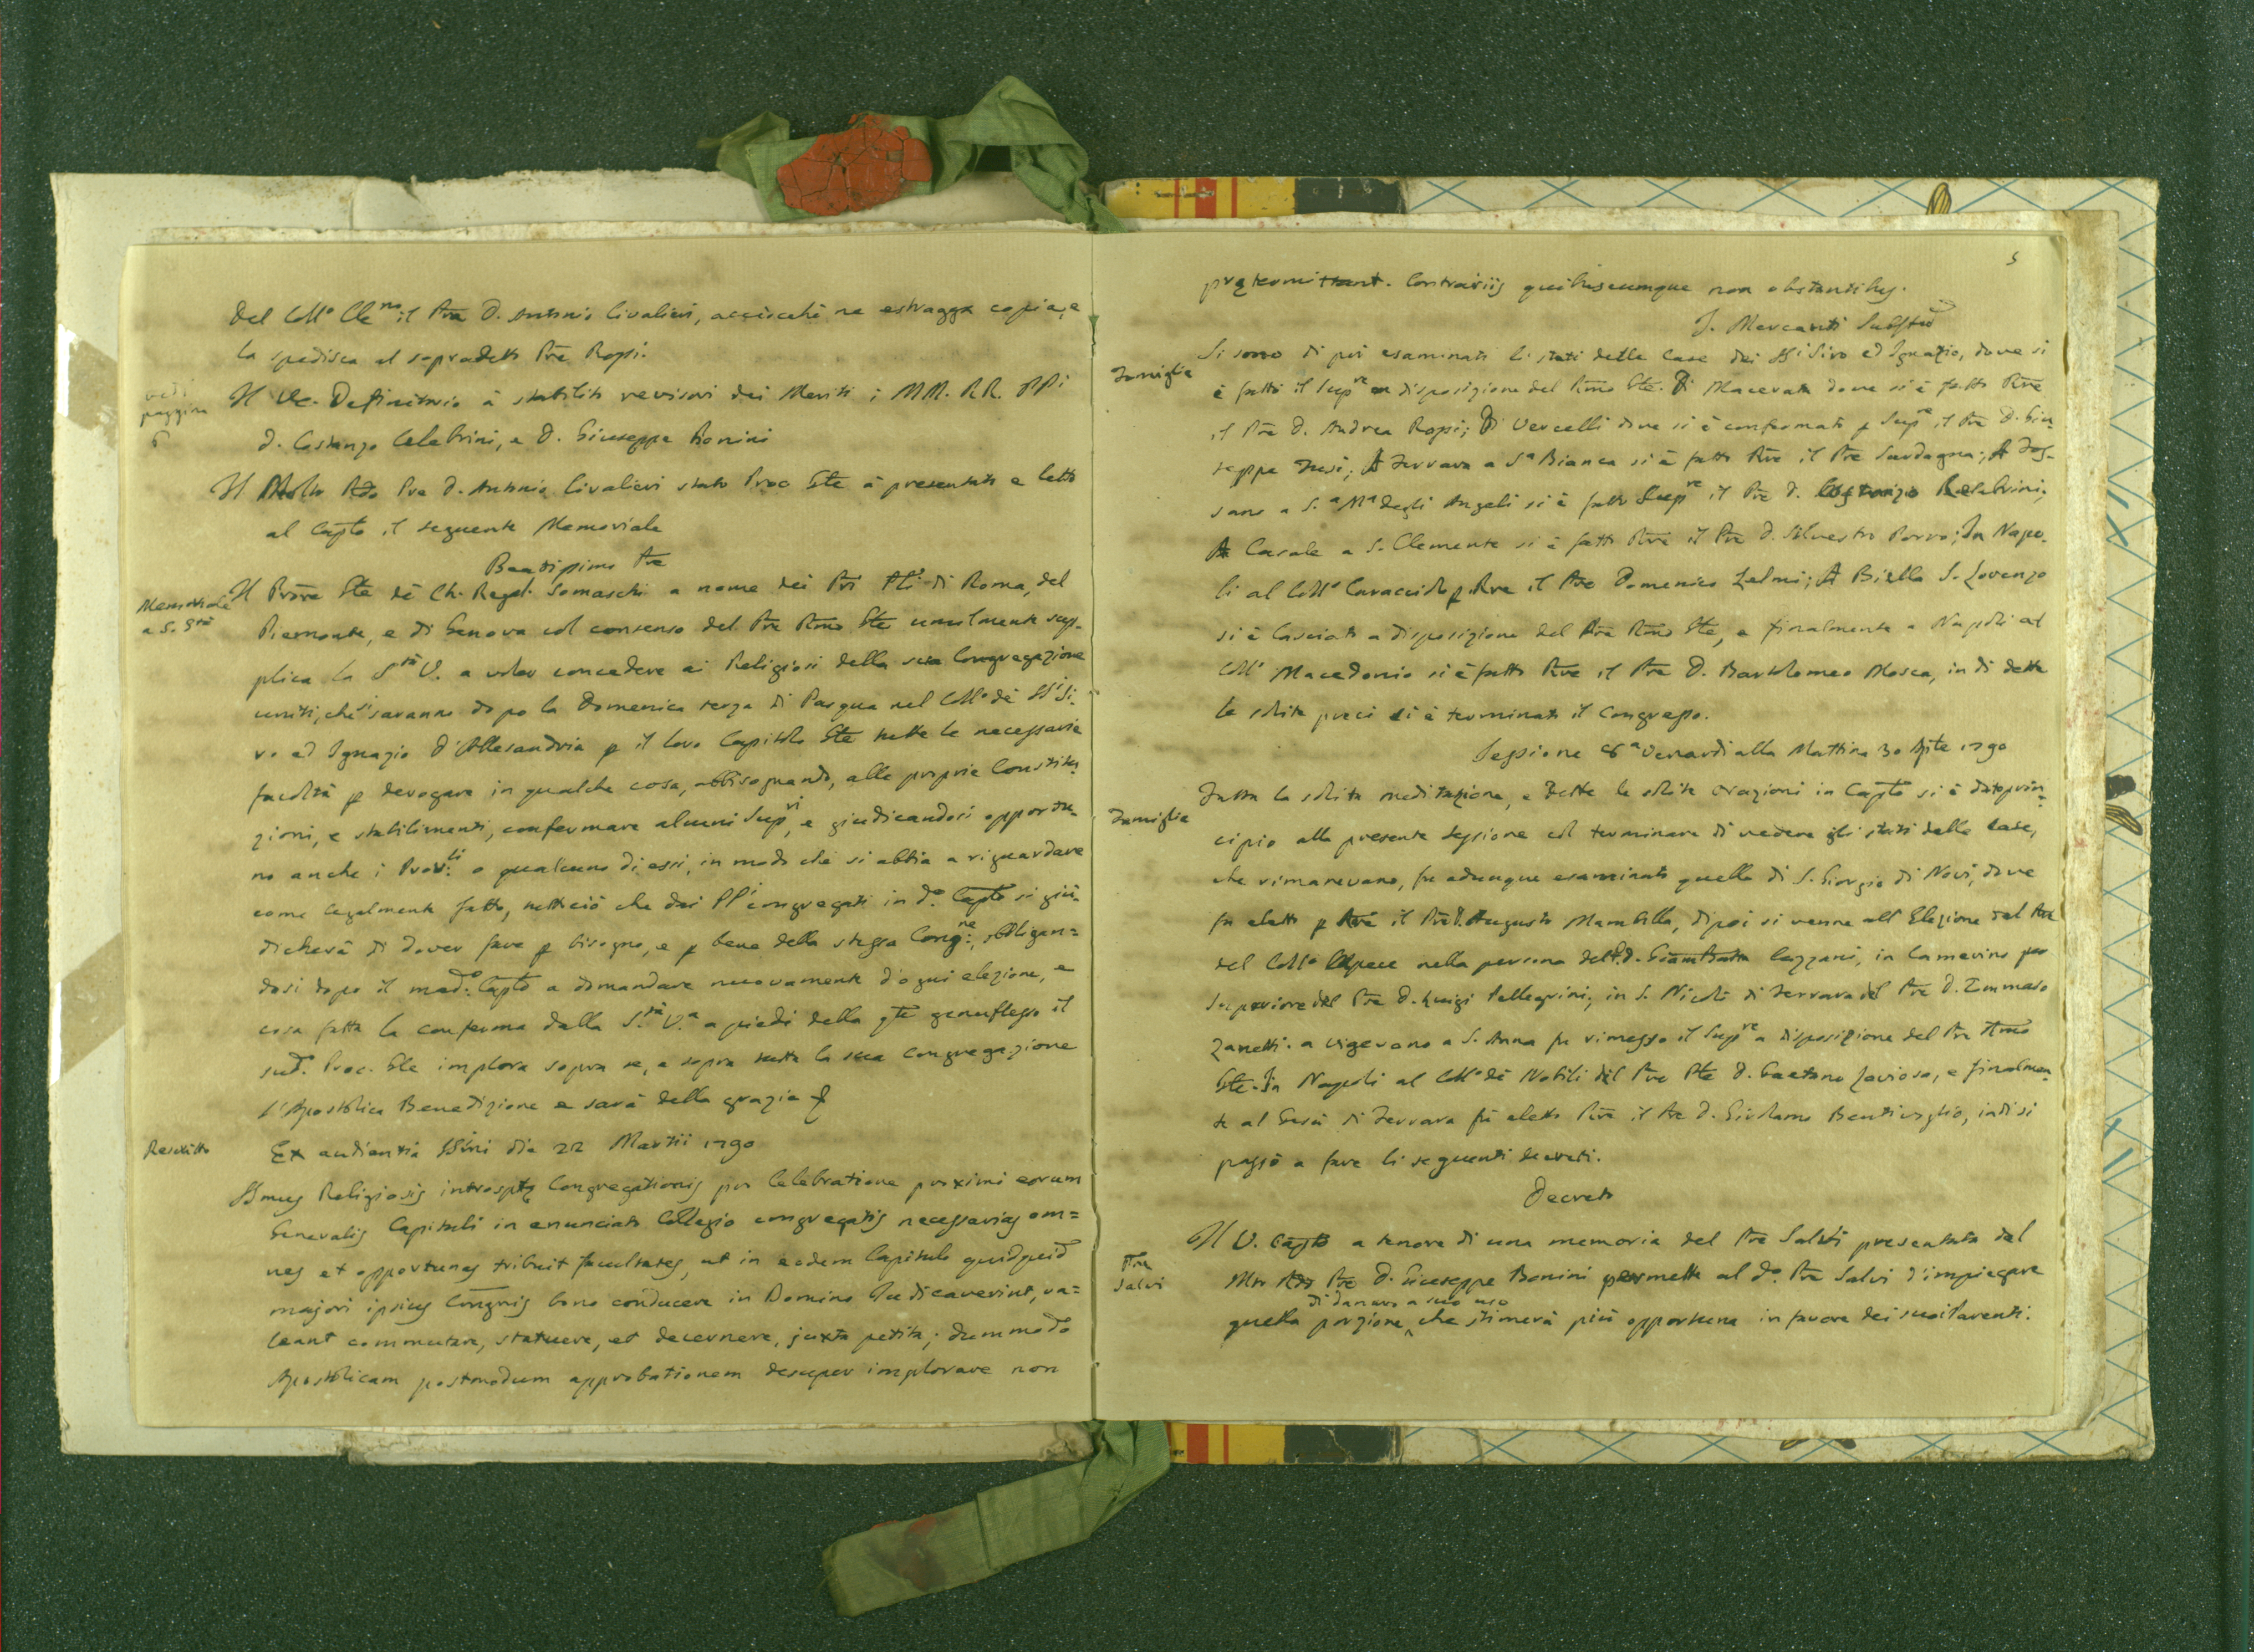 del Coll.o Cle.no il Pre D. Antonio Civalieri, acciochè ne estragga copia, e
la spedisca al sopradetto Pre Rossi.
vedi
paggina
6
Il Ve. Definitorio à stabiliti revisori dei Meriti i MM. RR. PPi
D. Costanzo Celebrini, e D. Giuseppe Bonini
Il Molto Rdo Pre D. Antonio Civalieri stato Proc Gle à presentato e letto
al Caplo il seguente Memoriale
Beatissimo Pre
Memoriale
a S. Stà
Il Prõre Gle dè Ch. Regol. Somaschi a nome dei Pri Pli di Roma, del
Piemonte, e di Genova col consenso del Pre Rmo Gle umilmente sup-
plica la S.tà V. a voler concedere ai Religiosi della sua Congregazione
uniti, che si saranno dopo la Domenica terza di Pasqua nel Coll.o dè SSi Si-
ro ed Ignazio d'Allesandria p il loro Capitolo Gle tutte le necessarie
facoltà p derogare in qualche cosa, abbisognando, alle proprie Constitu-
zioni, e stabilimenti, confermare alcuni Sup.ri, e giudicandosi opportu-
no anche i Prov.li o qualcuno di essi, in modo che si abbia a riguardare
come legalmente fatto, tutto ciò che dai PPi congregati in d.o Caplo si giu-
dicherà di dover fare p bisogno, e p bene della stessa Cong.ne, obbligan=
dosi dopo il med.o Caplo a domandare nuovamente d'ogni elezione, e
cosa fatta la conferma dalla S.tà V.a a piedi della qle genuflesso il
sud. Proc. Gle implora sopra se, e sopra tutta la sua Congregazione
l'Apostolica Benedizione e sarà della grazia
Rescritto
Ex audientia SSmi die 22 Martii 1790
SSmus Religiosis introsptę Congregationis pro Celebratione proximi eorum
Generalis Capituli in enunciato Collegio congregatis necessarias om=
nes et opportunas tribuit facultates, ut in eodem Capitulo quidquid
majori ipsius Congnis bono conducere in Domino Judicaverint, va=
leant commutare, statuere, et decernere, juxta petita; dummodo
Apostolicam postmodum approbationem desuper implorare non
5
prętermittant. Contrariis quibuscumque non obstantibus.
J. Mercanti Substus
Famiglie
Si sono di poi esaminati li stati delle Case dei SSi Siro ed Ignazio, dove si
è fatto il Sup.re a disposizione del Rmo Gle. Di Macerata dove si è fatto Rre
il Pre D. Andrea Rossi; Di Vercelli dove si è confermato p Sup.re il Pre D. Giu-
seppe Tusi; A Ferrara a S.a Bianca si è fatto Rre il Pre Sardagna; A Fos-
sano a S.a M.a degli Angeli si è fatto Sup.re il Pre D. Costanzo Celebrini;
A Casale a S. Clemente si è fatto Rre il Pre D. Silvestro Porro; In Napo-
li al Coll.o Caracciolo p Rre il Pre Domenico Zelmi; A Biella S. Lorenzo
si è lasciato a disposizione del Pre Rmo Gle, e finalmente a Napoli al
Coll.o Macedonio si è fatto Rre il Pre D. Bartolomeo Mosca, indi dette
le solite preci si è terminato il Congresso.
Sessione 8.a Venerdì alla Mattina 30 Aple 1790
Famiglie
Fatta la solita meditazione, e dette le solite orazioni in Caplo si è dato prin-
cipio alla presente sessione col terminare di vedere gli stati delle Case,
che rimanevano, fu adunque esaminato quello di S. Giorgio di Novi, dove
fu eletto p Rre il Pre D. Augusto Mambilla, di poi si venne all'Elezione del Rre
del Coll.o Capece nella persona del P. D. Giambatta Cazzani, in Camerino per
Superiore del Pre D. Luigi Pellegrini; in S. Nicolò di Ferrara del Pre D. Tommaso
Zanetti. a Vigevano a S. Anna fu rimesso il Sup.re a disposizione del Pre Rmo
Gle. In Napoli al Coll.o dè Nobili del Pre Ple D. Gaetano Laviosa, e finalmen-
te al Gesù di Ferrara fù eletto Rre il Pre D. Girolamo Bentivoglio, indi si
passò a fare li seguenti decreti.
Decreto
Pre
Salvi
Il V. Caplo a tenore di una memoria del Pre Salvi presentata dal
Mto Rdo Pre D. Giuseppe Bonini permette al d.o Pre Salvi d'impiegare
di danaro a suo uso
quella porzione che stimerà più opportuna in favore dei suoi Parenti.